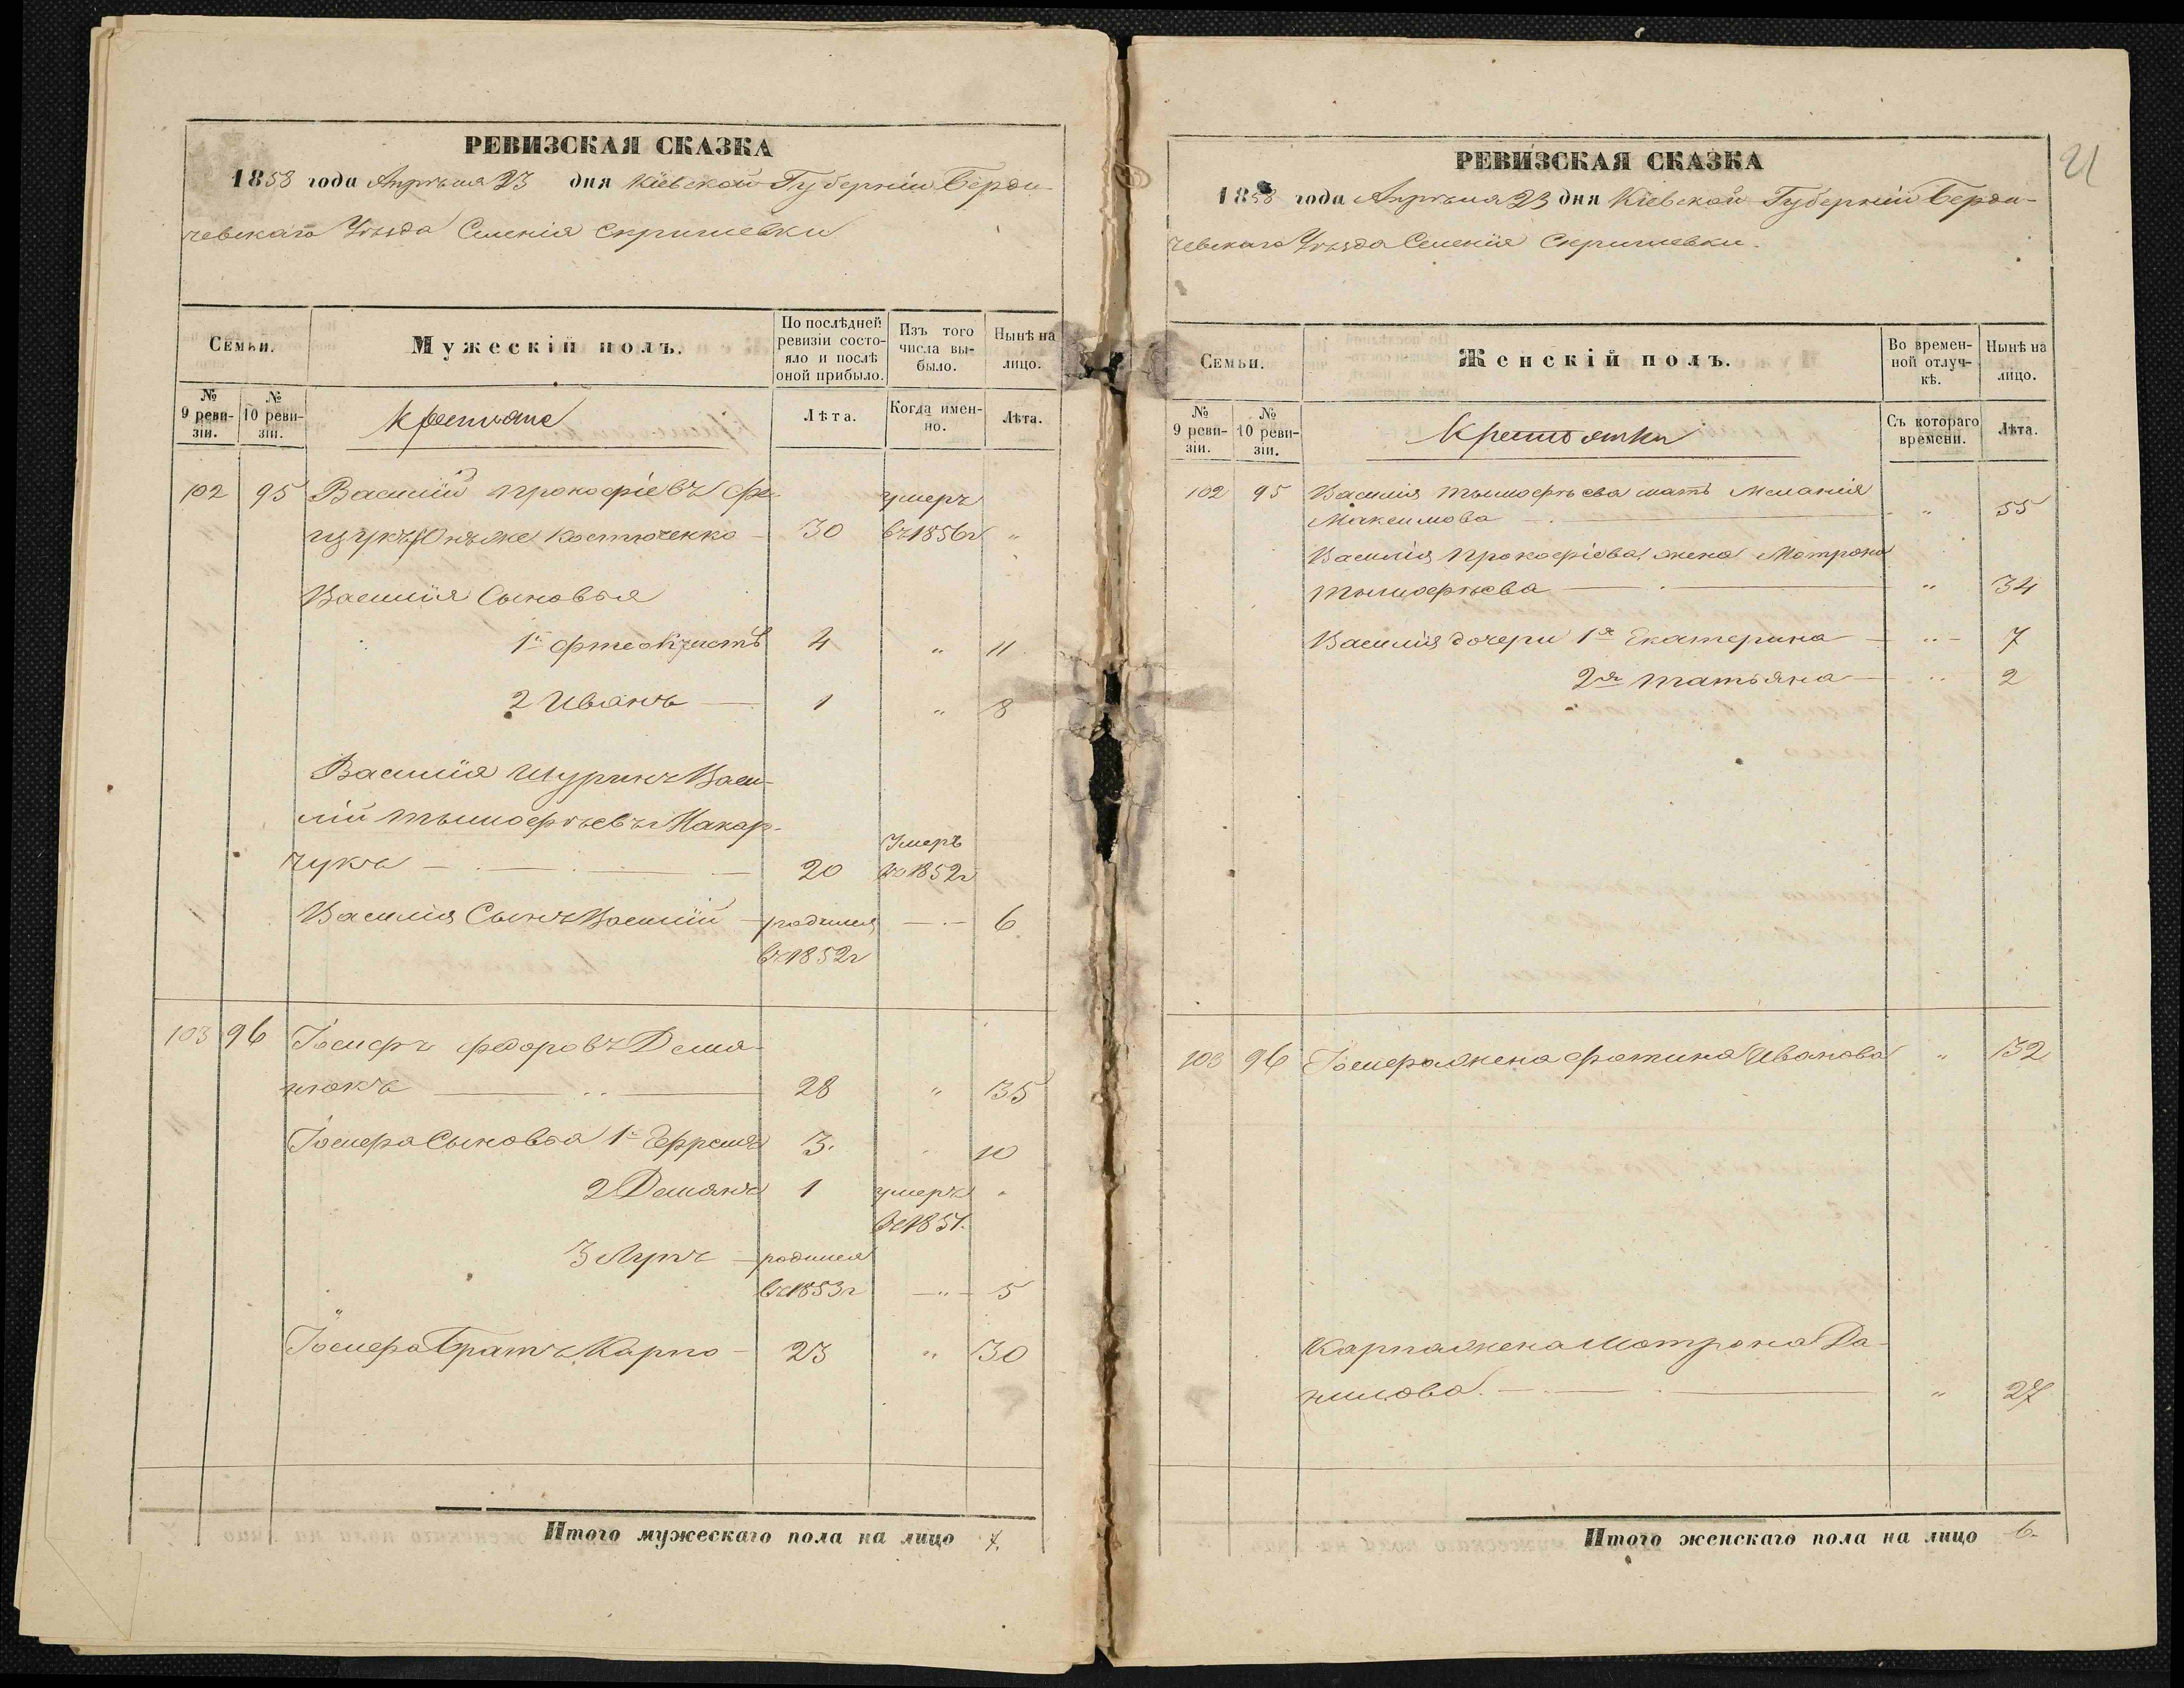 РЕВИЗСКАЯ СКАЗКА
1858 года Апрѣля 23 дня Кіевской Губерніи Берди-
чевскаго Уѣзда Селенія Скригилевки
Семьи.
Мужескій полъ.
По послѣдней ревизіи состояло и послѣ оной прибыло.
Изъ того числа выбыло.
Нынѣ на лицо.
№ 9 ревизіи.
№ 10 ревизіи.
Крестьяне
Лѣта.
Когда именно.
Лѣта.
102 95 Василій Прокофіевъ
онъ же Костюченко - 30 умеръ въ 1856г "
Василія Сыновья
1й Феоктистъ 4 " 11
2 Иванъ — 1 " 8
Василія Шуринъ Васи-
лій Тимофѣевъ Макар-
чукъ — 20 Умеръ въ 1852г
Василія Сынъ Василій - родился — 6
въ 1852г
103 96 Іосифъ Федоровъ Демя-
нюкъ — 28 " 35
Іосифа Сыновья 1й Ефремъ 3. 10
2 Демянъ 1 умеръ "
въ 1851.
3 Лупъ - родился
въ 1853г — " - 5
Іосифа Братъ Карпо - 23 " 30
Итого мужескаго пола на лицо 7.
21
РЕВИЗСКАЯ СКАЗКА
1858 года Апрѣля 23 дня Кіевской Губерніи Берди-
чевскаго Уѣзда Селенія Скригилевки.
Семьи.
Женскій полъ.
Во временной отлучкѣ.
Нынѣ на лицо.
№ 9 ревизіи.
№ 10 ревизіи.
Крестьянки
Съ котораго времени.
Лѣта.
102 95 Василія Тимофѣева мать Меланія
Максимова — " 55
Василія Прокофіева жена Мотрона
Тимофѣева — " 34
Василія дочери 1я Екатерина — " - 7
2я Татьяна — " 2
103 96 Іосифа жена Фотина Иванова " 32
Карпа жена Мотрона Да-
нилова. — " 27
Итого женскаго пола на лицо 6.